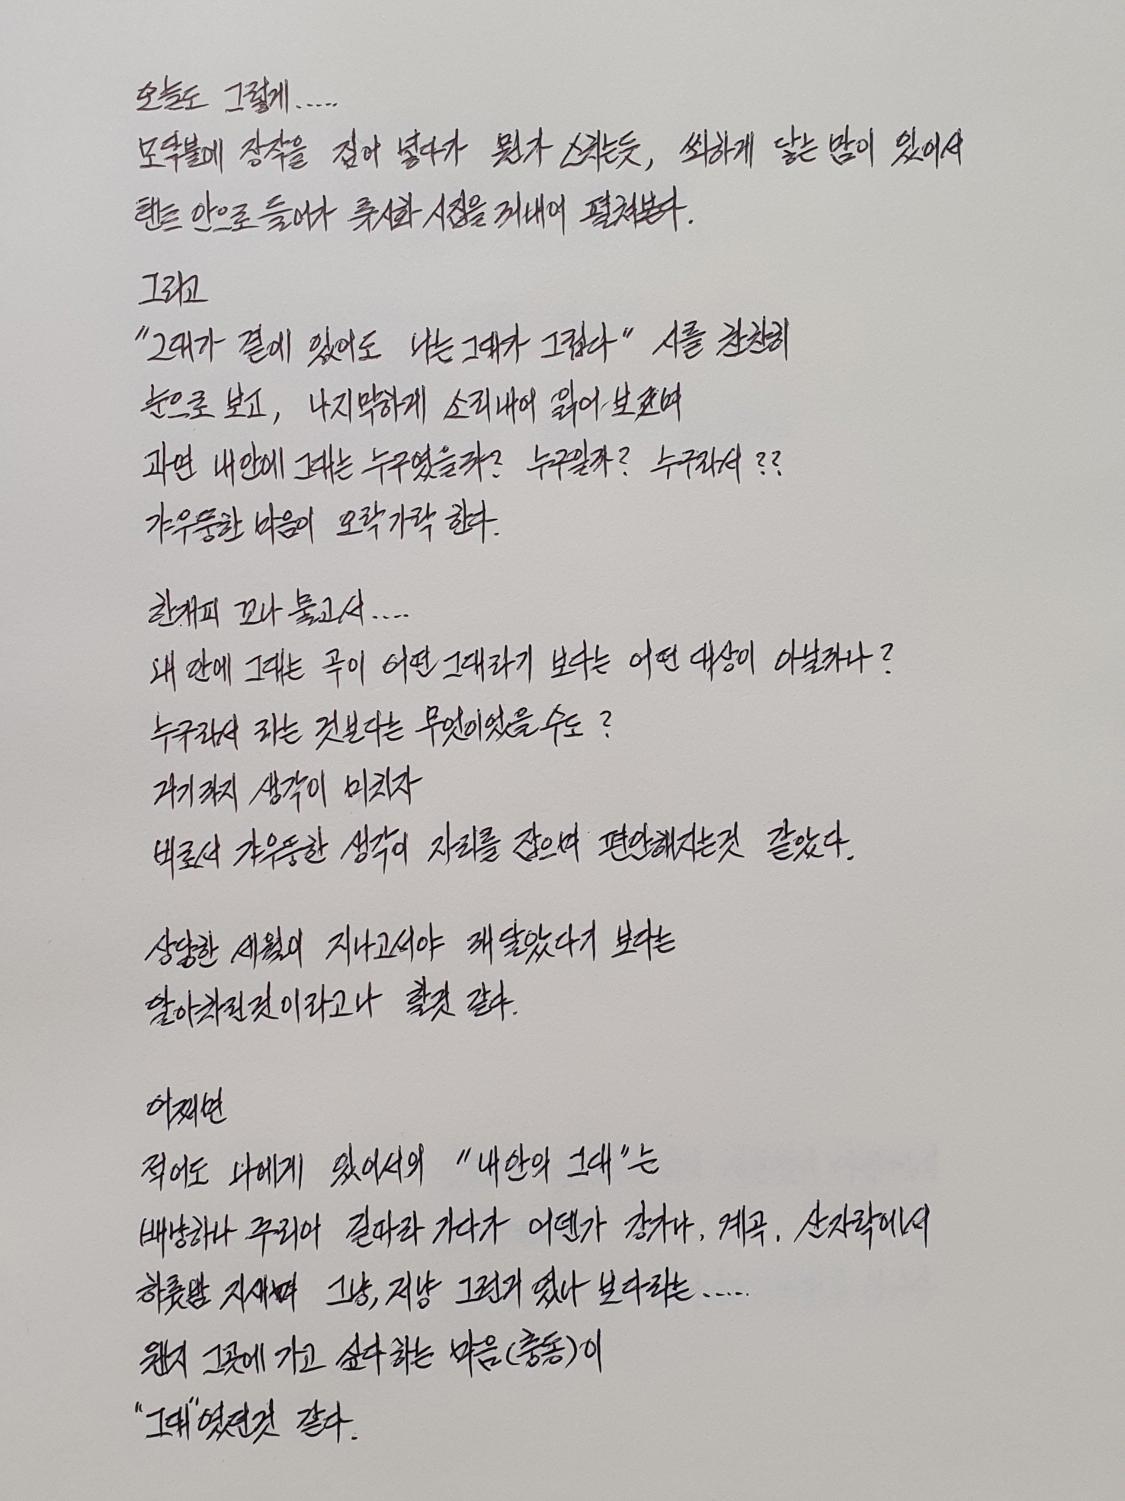 오늘도 그렇게.....
모닥불에 장작을 집어 넣다가 뭔가 스치는듯, 쐬하게 닿는 맘이 있어서
텐트 안으로 들어가 류시화 시집을 꺼내어 펼쳐본다.
그리고
"그대가 곁에 있어도 나는 그대가 그립다" 시를 찬찬히
눈으로 보고, 나지막하게 소리내어 읽어 보며
과연 내안에 그대는 누구였을까? 누구일까? 누구라서??
갸우뚱한 마음이 오락가락 한다.
한개피 꼬나 물고서....
내 안에 그대는 굳이 어떤 그대라기 보다는 어떤 대상이 아닐까나?
누구라서 라는 것보다는 무엇이었을 수도?
거기까지 생각이 미치자
비로서 갸우뚱한 생각이 자리를 잡으며 편안해지는것 같았다.
상당한 세월이 지나고서야 깨달았다기 보다는
알아차린것이라고나 할것 같다.
어쩌면
적어도 나에게 있어서의 "내안의 그대"는
배낭하나 꾸리어 길따라 가다가 어덴가 강가나, 계곡, 산자락에서
하룻밤 지새며 그냥, 저냥 그런거 였나 보다라는.....
웬지 그곳에 가고 싶다하는 마음(충동)이
"그대"였던것 같다.